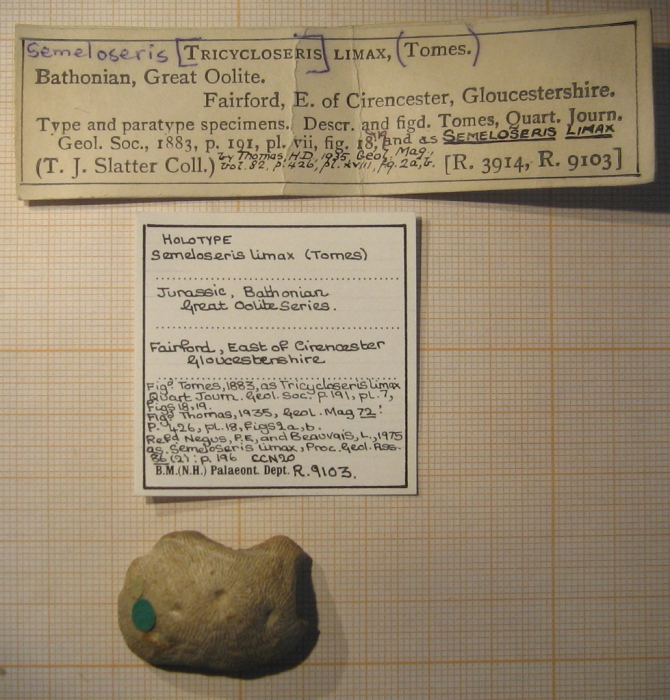 Semeloseris [TRICYCLOSERIS] LIMAX, (Tomes.)
Bathonian, Great Oolite.
Fairford, E. of Cirencester, Gloucestershire.
Type and paratype specimens. Descr. and figd. Tomes, Quart. Journ.
Geol. Soc., 1883, p. 191, pl. vii, fig. 18, and as SEMELOSERIS LIMAX
by Thomas, H.D., 1935, Geol. Mag.,
(T. J. Slatter Coll.) vol. 82, p. 426, pl. xviii, fig. 2a, b. [R. 3914, R. 9103]
HOLOTYPE
Semeloseris limax (Tomes)
Jurassic, Bathonian
Great Oolite Series.
Fairford, East of Cirencester
Gloucestershire
Figd Tomes, 1883, as Tricycloseris limax
Quart Journ. Geol. Soc. p. 191, pl. 7,
Figs 18, 19.
Figd Thomas, 1935, Geol. Mag 72:
P. 426, pl. 18, Figs 2a, b.
Refd Negus, P.E, and Beauvais, L., 1975
as Semeloseris limax, Proc. Geol. Ass.
86 (2): p. 196 CCN20
B.M.(N.H.) Palaeont. Dept. R. 9103.